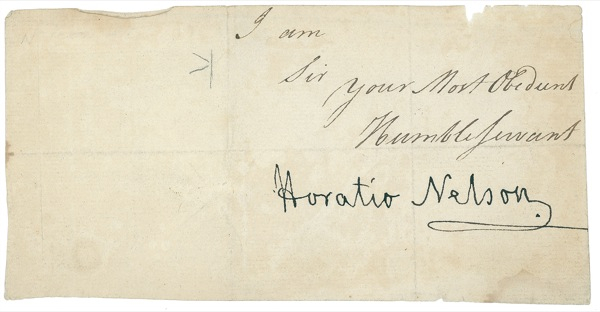 I am
Sir
your Most Obedient
Humble Servant
Horatio Nelson.